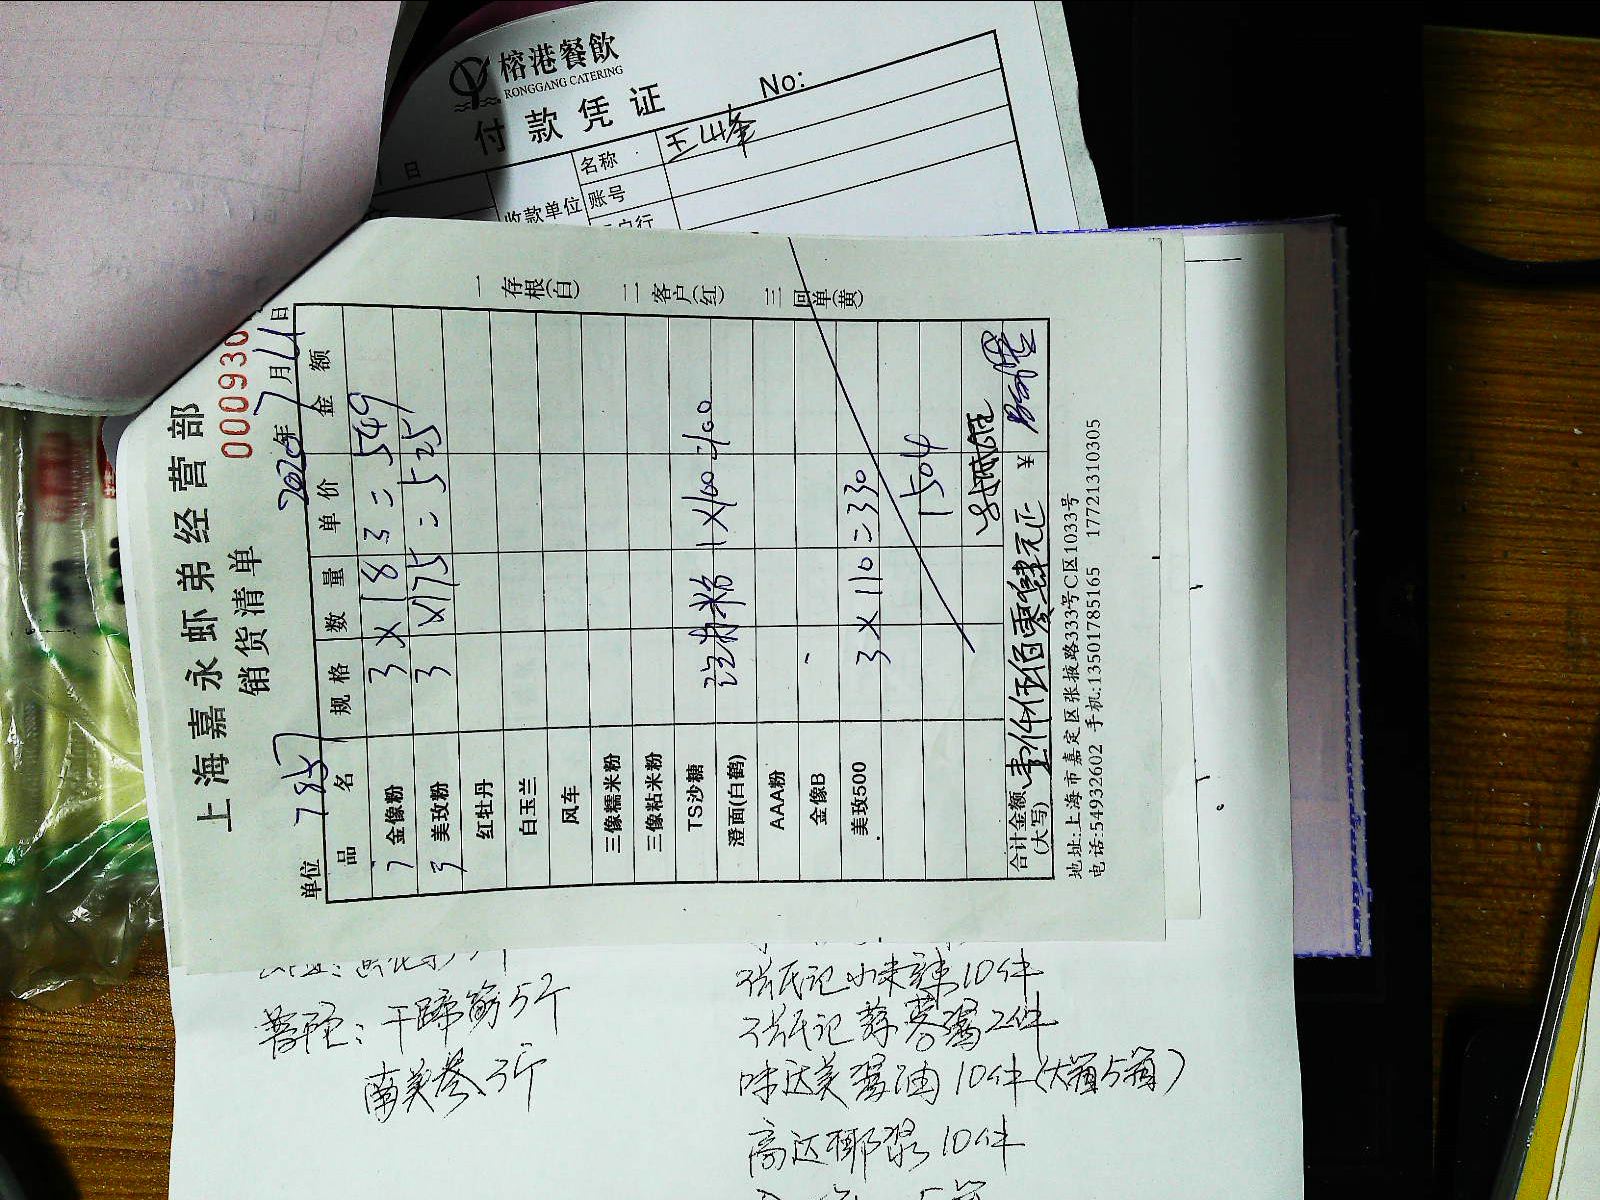 榕港餐飲
RONGGANG CATERING
付款凭证
No:
日
名称 王山峰
收款单位 账号
户行
上海嘉永虾弟经营部
销货清单
000930
单位
2020年7月11日
品名 规格 数量 单价 金额
金像粉 3×183=549
3 美玫粉 3×175=525
红牡丹
白玉兰
风车
三像糯米粉
三像粘米粉
TS沙糖
澄面(白鹤) 1×100
AAA粉
金像B
美玫500 3×110=330
1504
合计金额(大写) 壹仟伍佰零肆元正 ¥
地址:上海市嘉定区张掖路333号C区1033号
电话:54932602 手机:13501785165 17721310305
一存根(白) 二客户(红) 三回单(黄)
干蹄筋5斤
南美参3斤
10件
蒜蓉酱2件
味达美酱油10件(大箱5箱)
高达椰浆10件